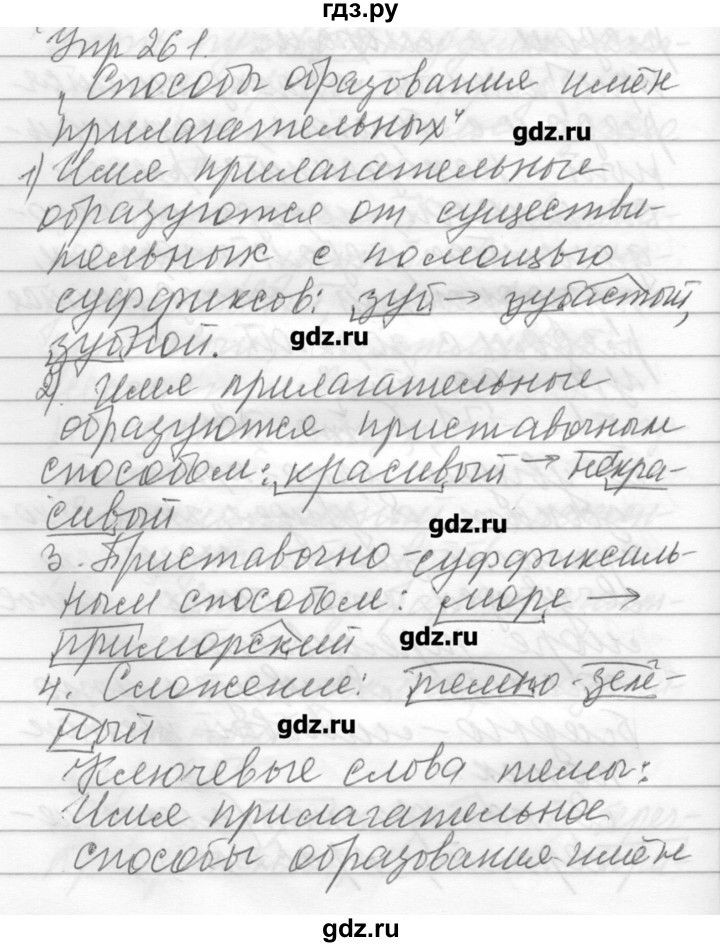 гдз.ру
Упр 261.
„Способы образования имён
прилагательных“ gdz.ru
1) Имя прилагательные
образуются от существи-
тельных с помощью
суффиксов: зуб → зубастый,
зубной. gdz.ru
2) Имя прилагательные
образуются приставочным
способом: красивый → некра-
сивый gdz.ru
3. Приставочно-суффиксаль-
ным способом: море →
приморский gdz.ru
4. Сложение: темно-зелё-
ный gdz.ru
Ключевые слова темы:
Имя прилагательное
способы образования имён
gdz.ru